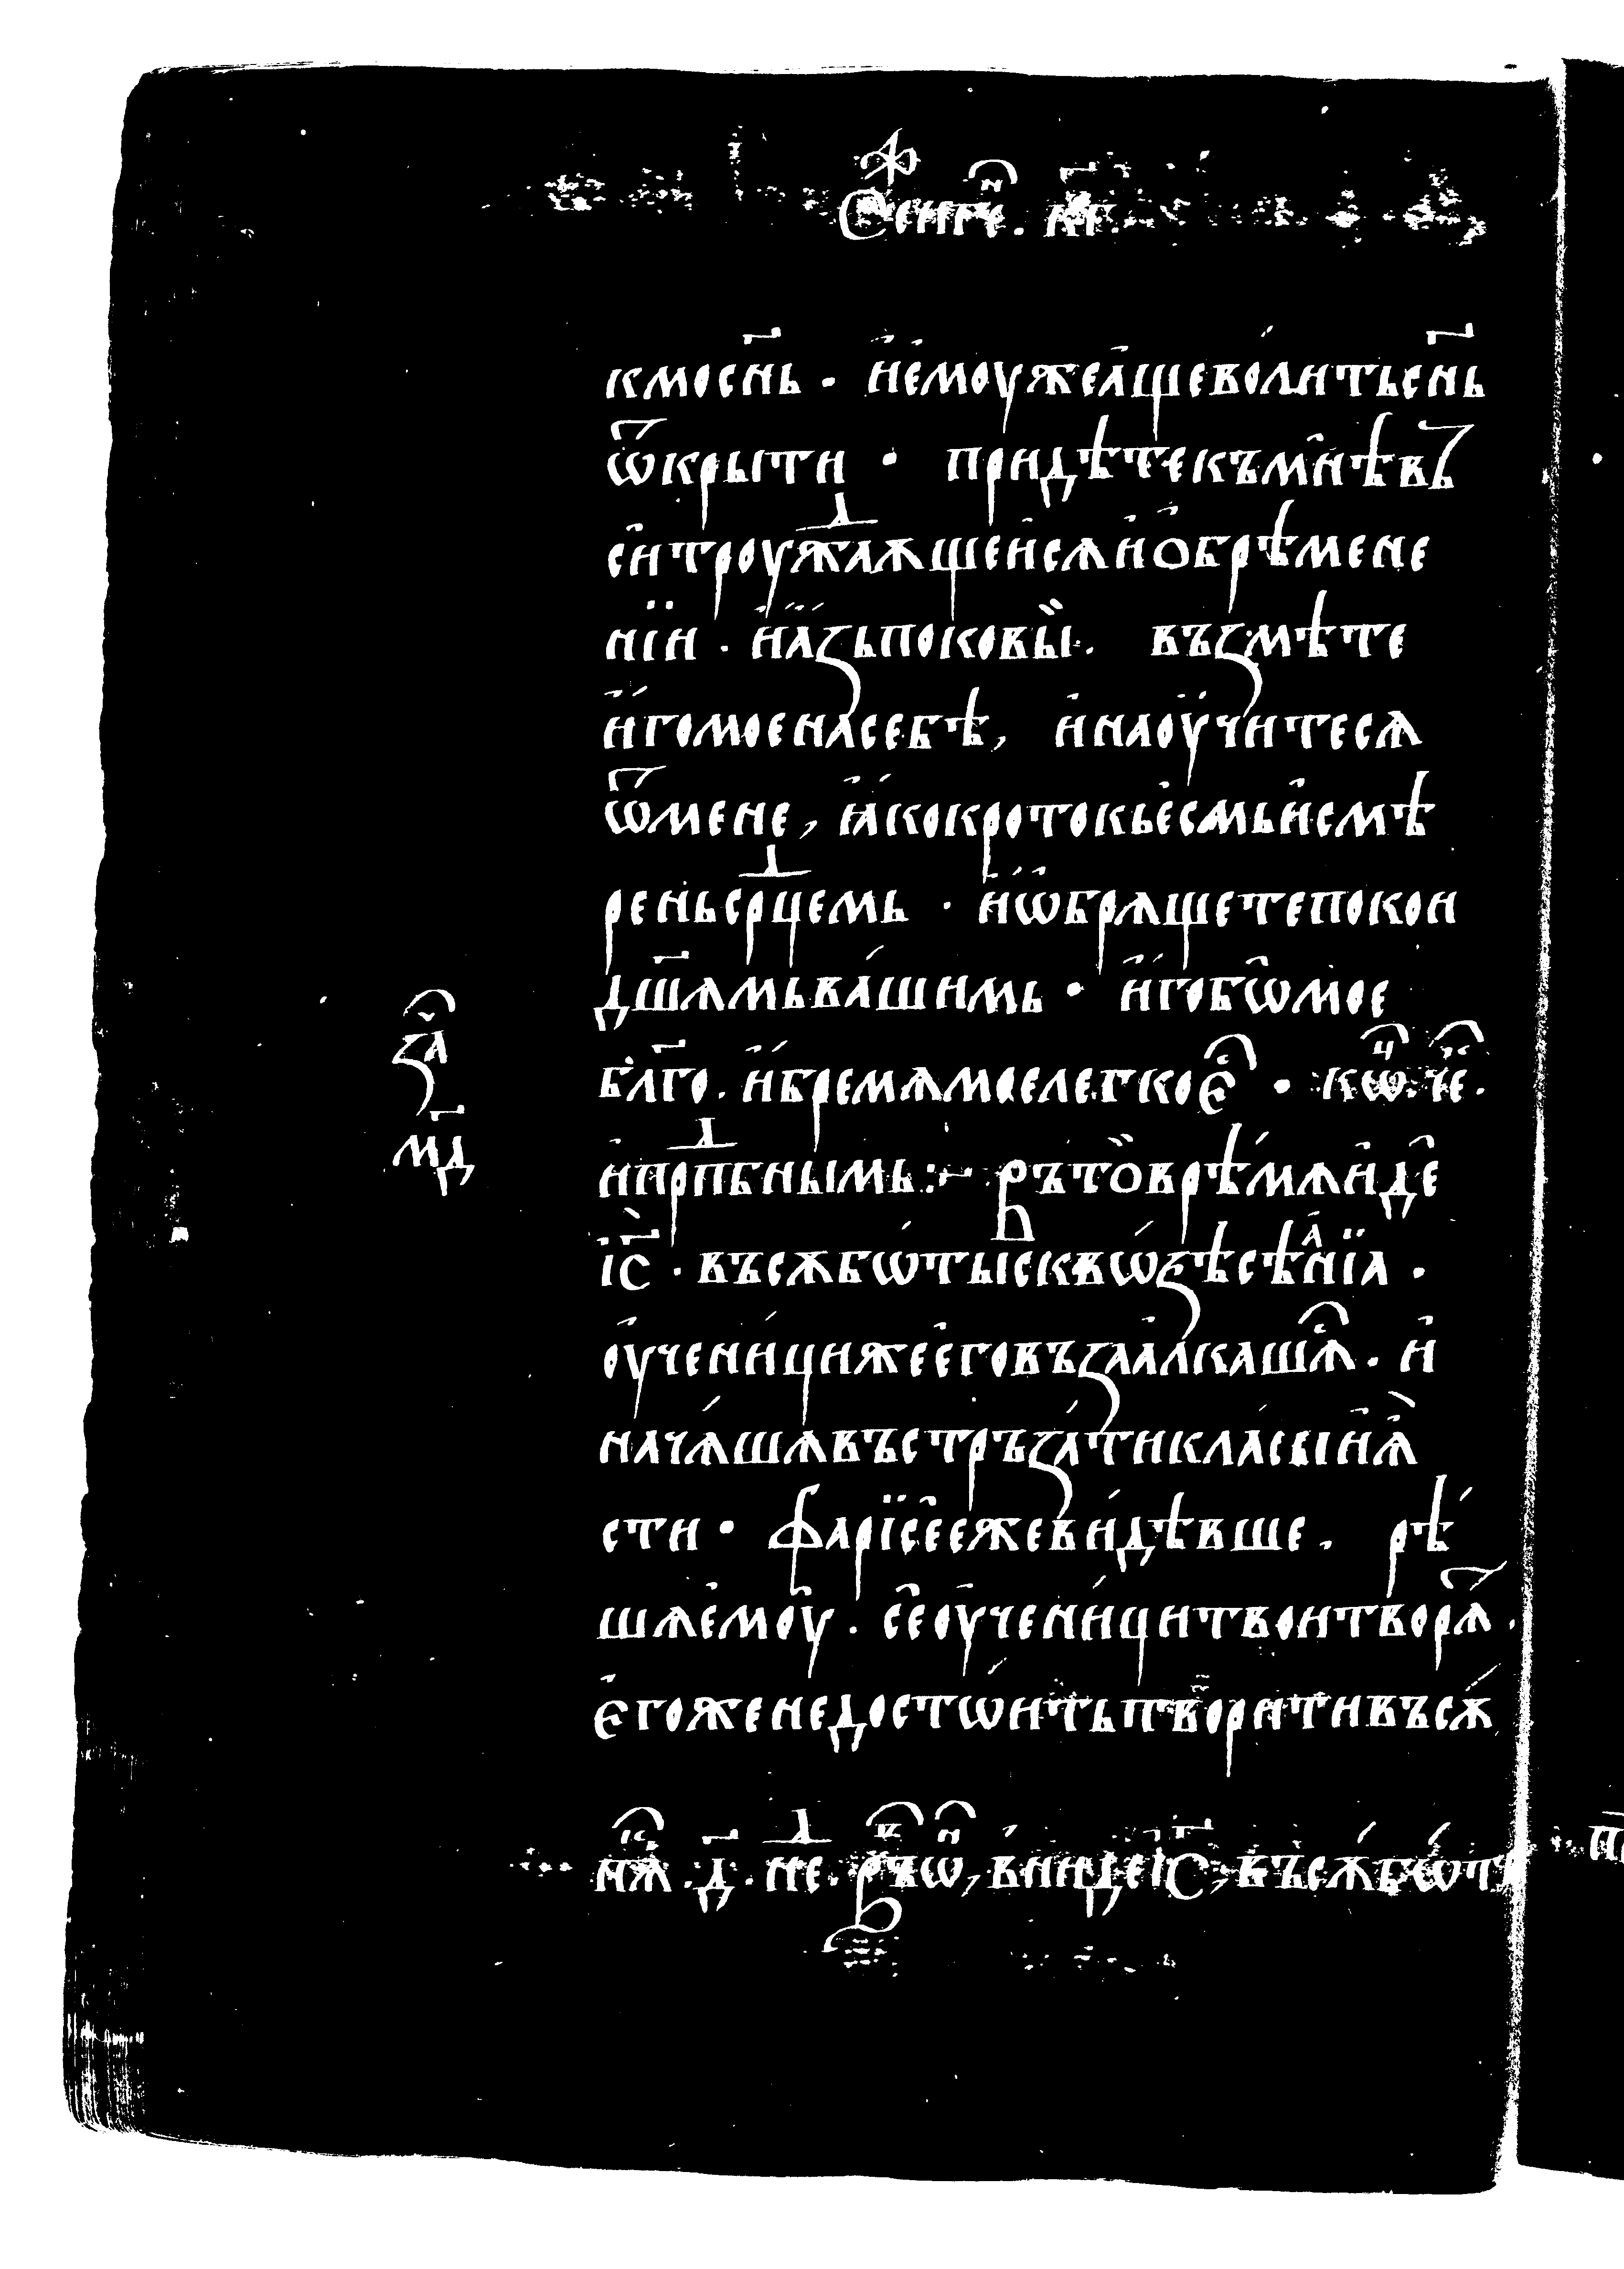 кмоснь · и҆ емоужеа҆щеволитьснь
ѿкрыти · придѣтекъмнѣвь
сѝтроуждаѫщеисѧиобрѣмене
нїи · и҆азьпоковы̀ · въꙁмѣте
и҆гомоенасебѣ, и҆наоучитесѧ
ѿмене, ꙗ҆кокротокьесмьи҆смѣ
реньсрⷣцемь · и҆ѡбрѧщетепокои
дш҃ѧмьва́шимь · и҆гобѡмое
бл҃го · и҆бремѧмоелегкоеⷭ҇ ·
ꙁаⷱ҇
мд҃
и҆прⷣпбнымь :~ Въто̀врѣ́мѧи҆де
і҆с҃ · въсѫбѡ́тысквѡ́ꙃѣсѣⷶнїа ·
оученѝцижеегoвъꙁаалкашѧⷭ҇ · и҆
нача́шѧвъстръꙁа́тикла́сыи҆ꙗ҆̀
сти · фарїсеежевѝдѣвше · рѣ́
шѧе҆моу · сеоученѝцитвоитворѧⷮ ·
е҆гоженедостѡ́итьтворитивъсѫ